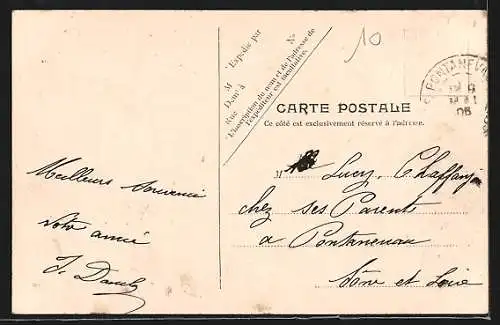 Expédié par
M
Demt à
Rue
N°
L'inscription du nom et de l'adresse de
l'expéditeur est facultative.
10
PONTANEV
CARTE POSTALE
Ce côté est exclusivement réservé à l'adresse.
Meilleurs Souvenirs
Votre amie
M Lucy Chaffanjon
chez ses Parents
a Pontanevau
Sône et Loire